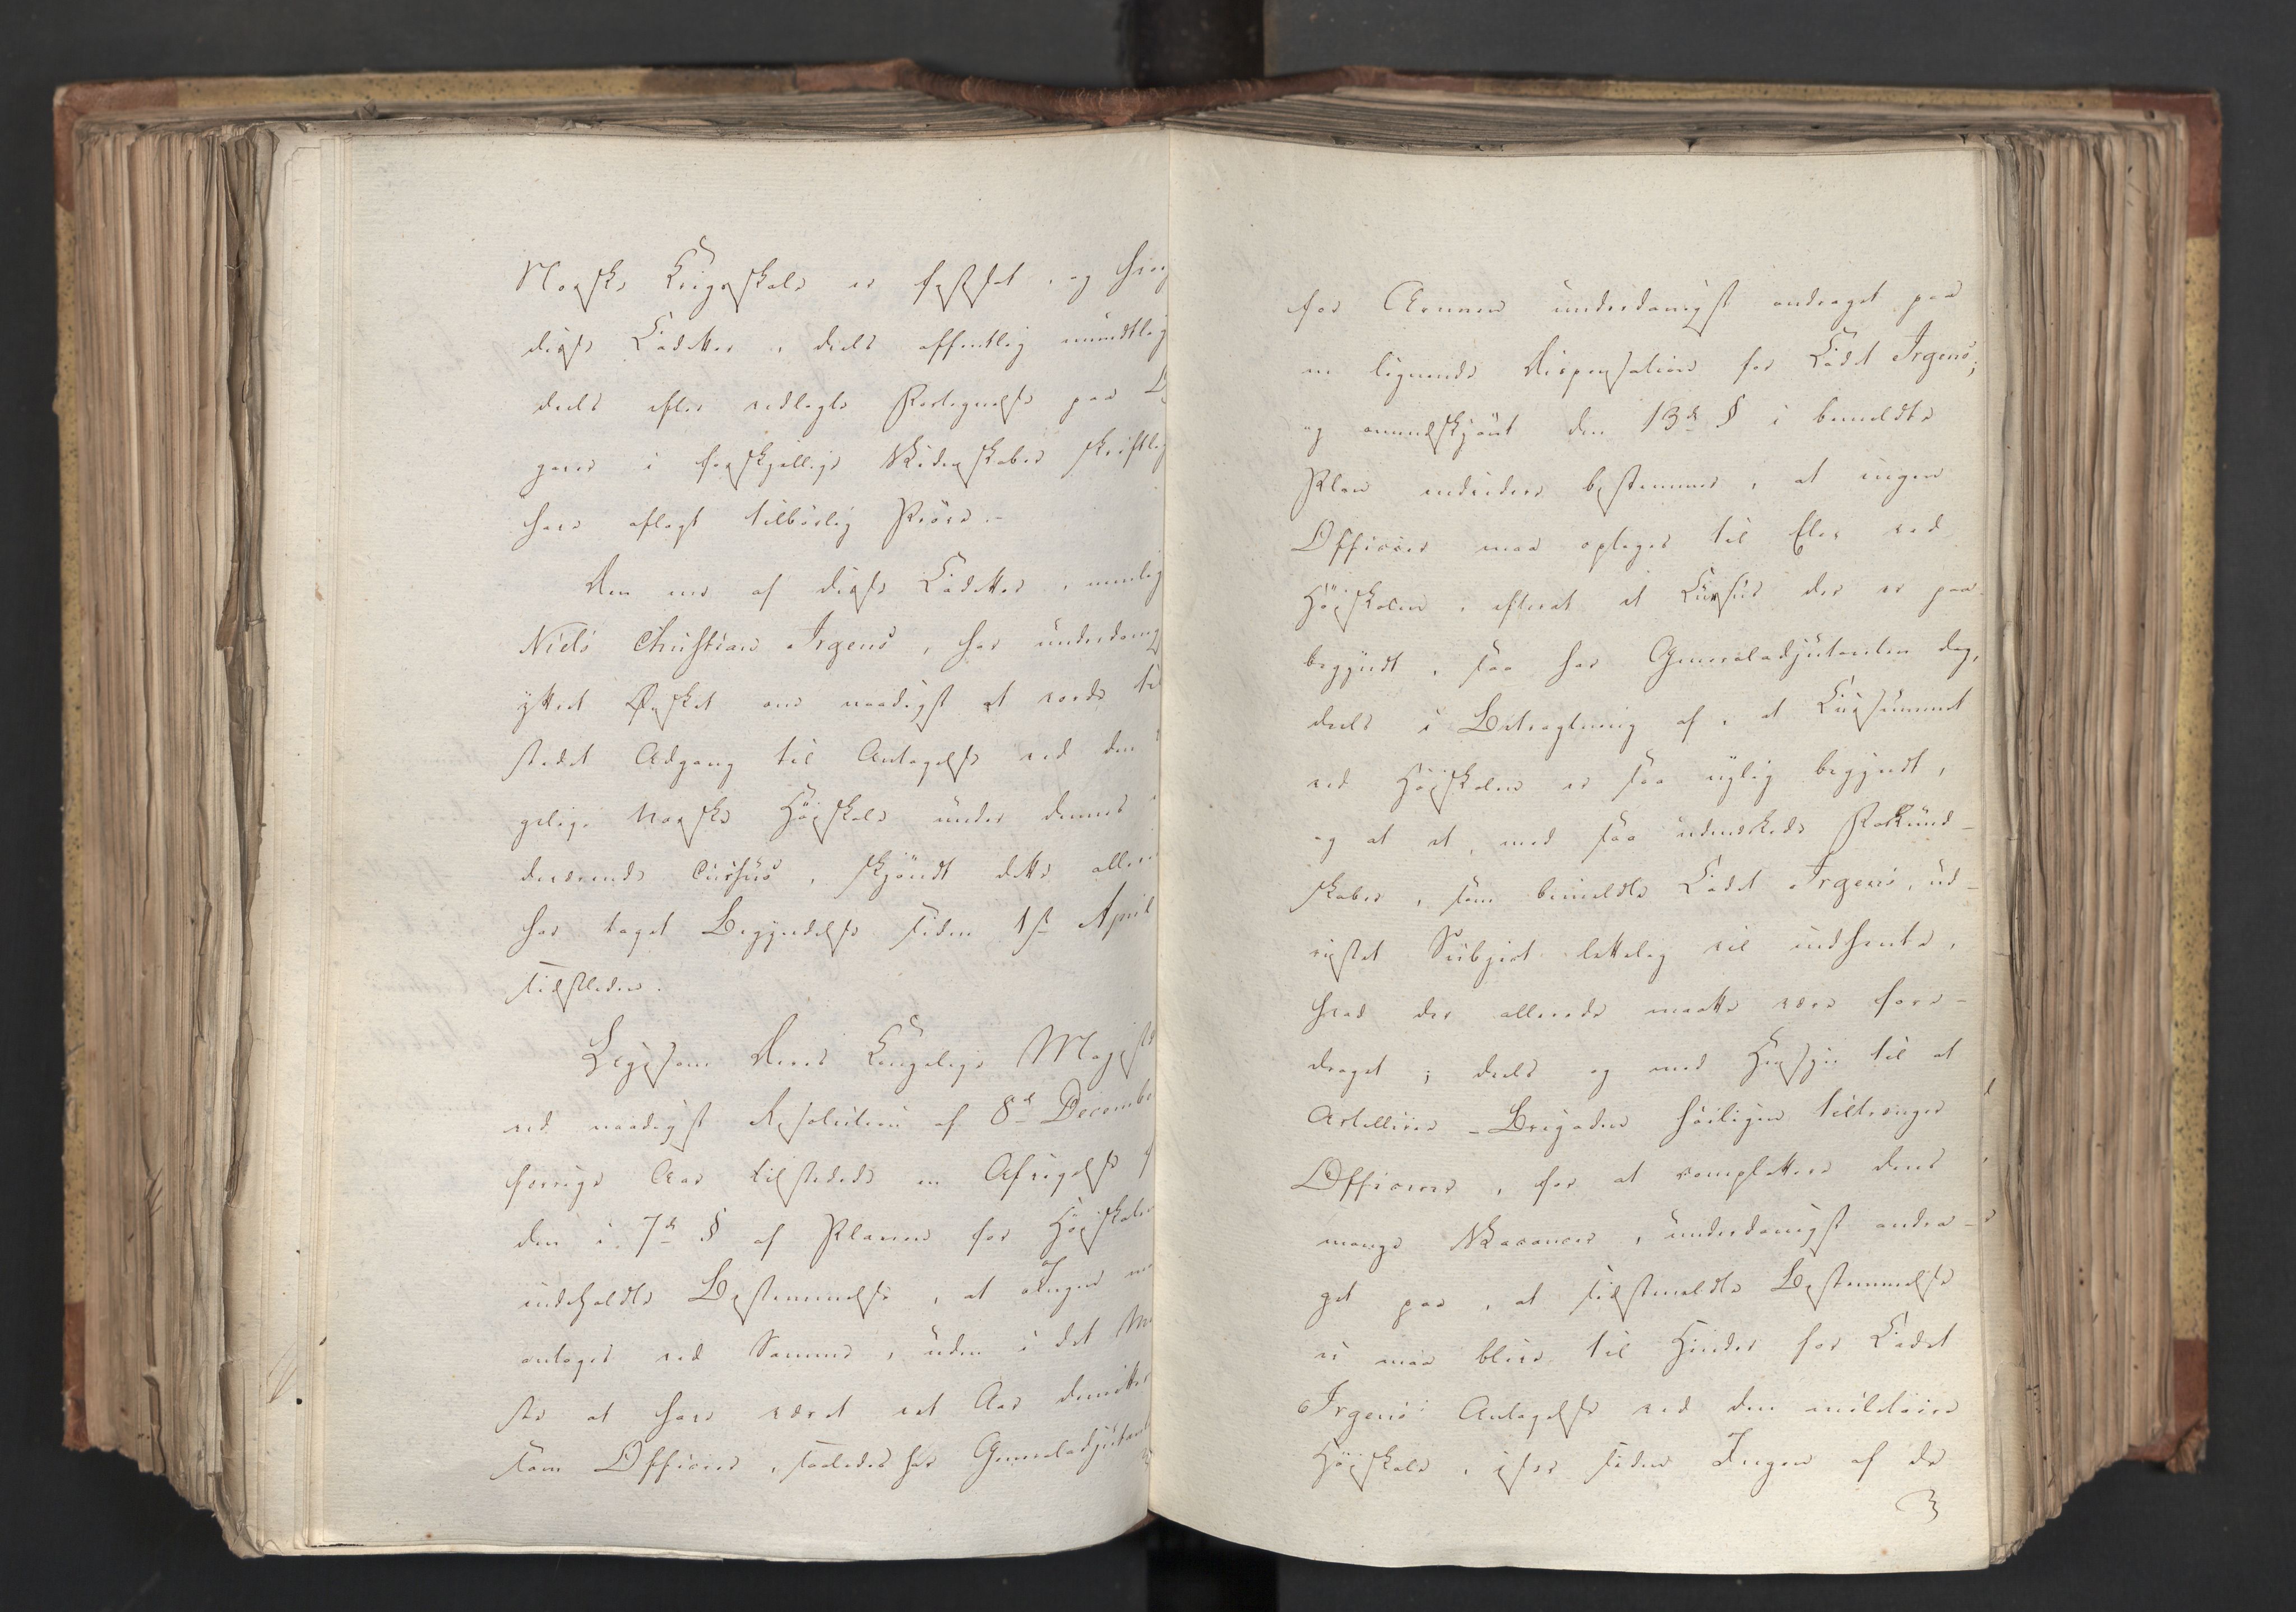 Norske Krigsskole er bestemt, og hvor
disse Cadetter, deels offentlig mundtlig
deels efter vedlagte Fortegnelse paa O
gaver i forskjellige Videnskaber skriftlig
have aflagt tilbørlig Prøve.-
Den ene af disse Cadetter, nemlig
Niels Christian Irgens, har underdanig
yttret Ønsket om naadigst at vorde til
stædet Adgang til Antagelse ved den
gelige Norske Høiskole under dennes
deværende Cursus, skjøndt dette aller
har taget Begyndelse siden 1ste April
sidstleden.
Ligesom Deres Kongelige Majestæ
ved naadigst Resolution af 8de Decembe
forrige Aar tilstædede en Afvigelse f
den i 7de § af Planen for Høiskolen
indeholdte Bestemmelse, at Ingen maa
antages ved Samme, uden i det Mi
ste at have været eet Aar Armeen
som Officier, saaledes har Generaladjutant
for Armeen underdanigst andraget paa
en lignende Dispensation for Cadet Irgens;
og omendskjønt den 13de § i bemeldte
Plan endvidere bestemmer, at ingen
Officier maa optages til Elev ved
Høiskolen, efterat et Cursus der er paa-
begyndt, saa har Generaladjutanten dog,
deels i Betragtning af, at Cursummet
ved Høiskolen er saa nylig begyndt,
og at et, med saa udmærkede Forkund-
skaber, som bemeldte Cadet Irgens, ud-
rustet Subject letteleg vil indhente,
hvad der allerede maatte være fore-
draget; deels og med Hensyn til at
Artillerie-Brigaden høiligen tiltrænger
Officierer, for at complettere dens
mange Vacancer, underdanigst andra-
get paa, at sidstmeldte Bestemmelse
ei maa blive til Hinder for Cadet
Irgens' Antagelse ved den militaire
Høiskole, især siden Ingen af de